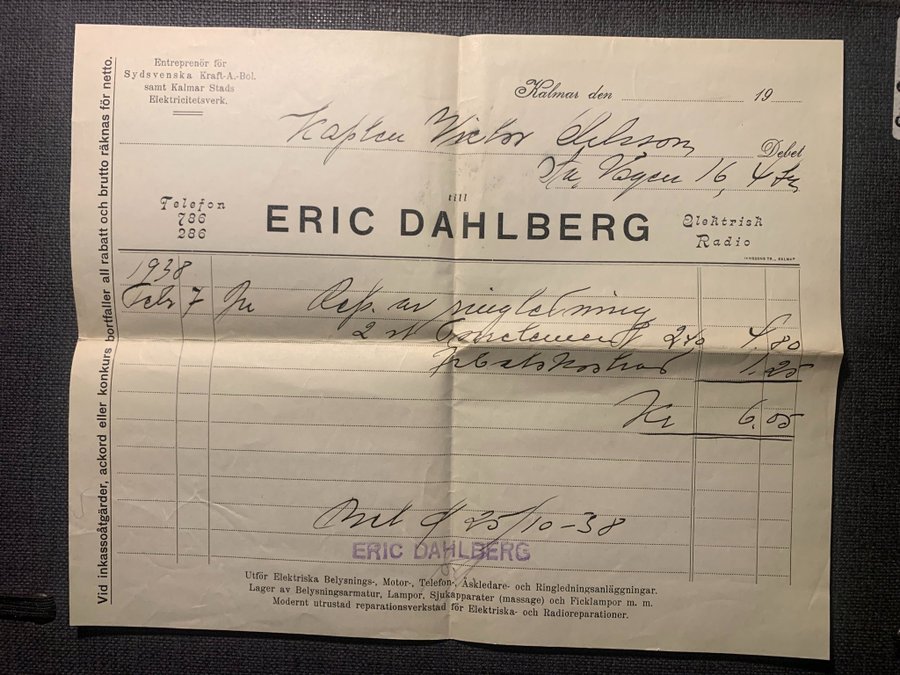 Entreprenör för
Sydsvenska Kraft-A.-Bol.
samt Kalmar Stads
Elektricitetsverk.
Kalmar den 19
Kapten Victor
Debet
Vägen 16, 4
till
Telefon
786
286
ERIC DAHLBERG
Elektrisk
Radio
JANSSONS TR., KALMAR
1938
Febr 7 Rep. av ringledning
2 st 2,40 4,80
1,25
Kr 6,05
Betalt d/ 25/10-38
ERIC DAHLBERG
Utför Elektriska Belysnings-, Motor-, Telefon-, Åskledare- och Ringledningsanläggningar.
Lager av Belysningsarmatur, Lampor, Sjukapparater (massage) och Ficklampor m. m.
Modernt utrustad reparationsverkstad för Elektriska- och Radioreparationer.
Vid inkassoåtgärder, ackord eller konkurs bortfaller all rabatt och brutto räknas för netto.